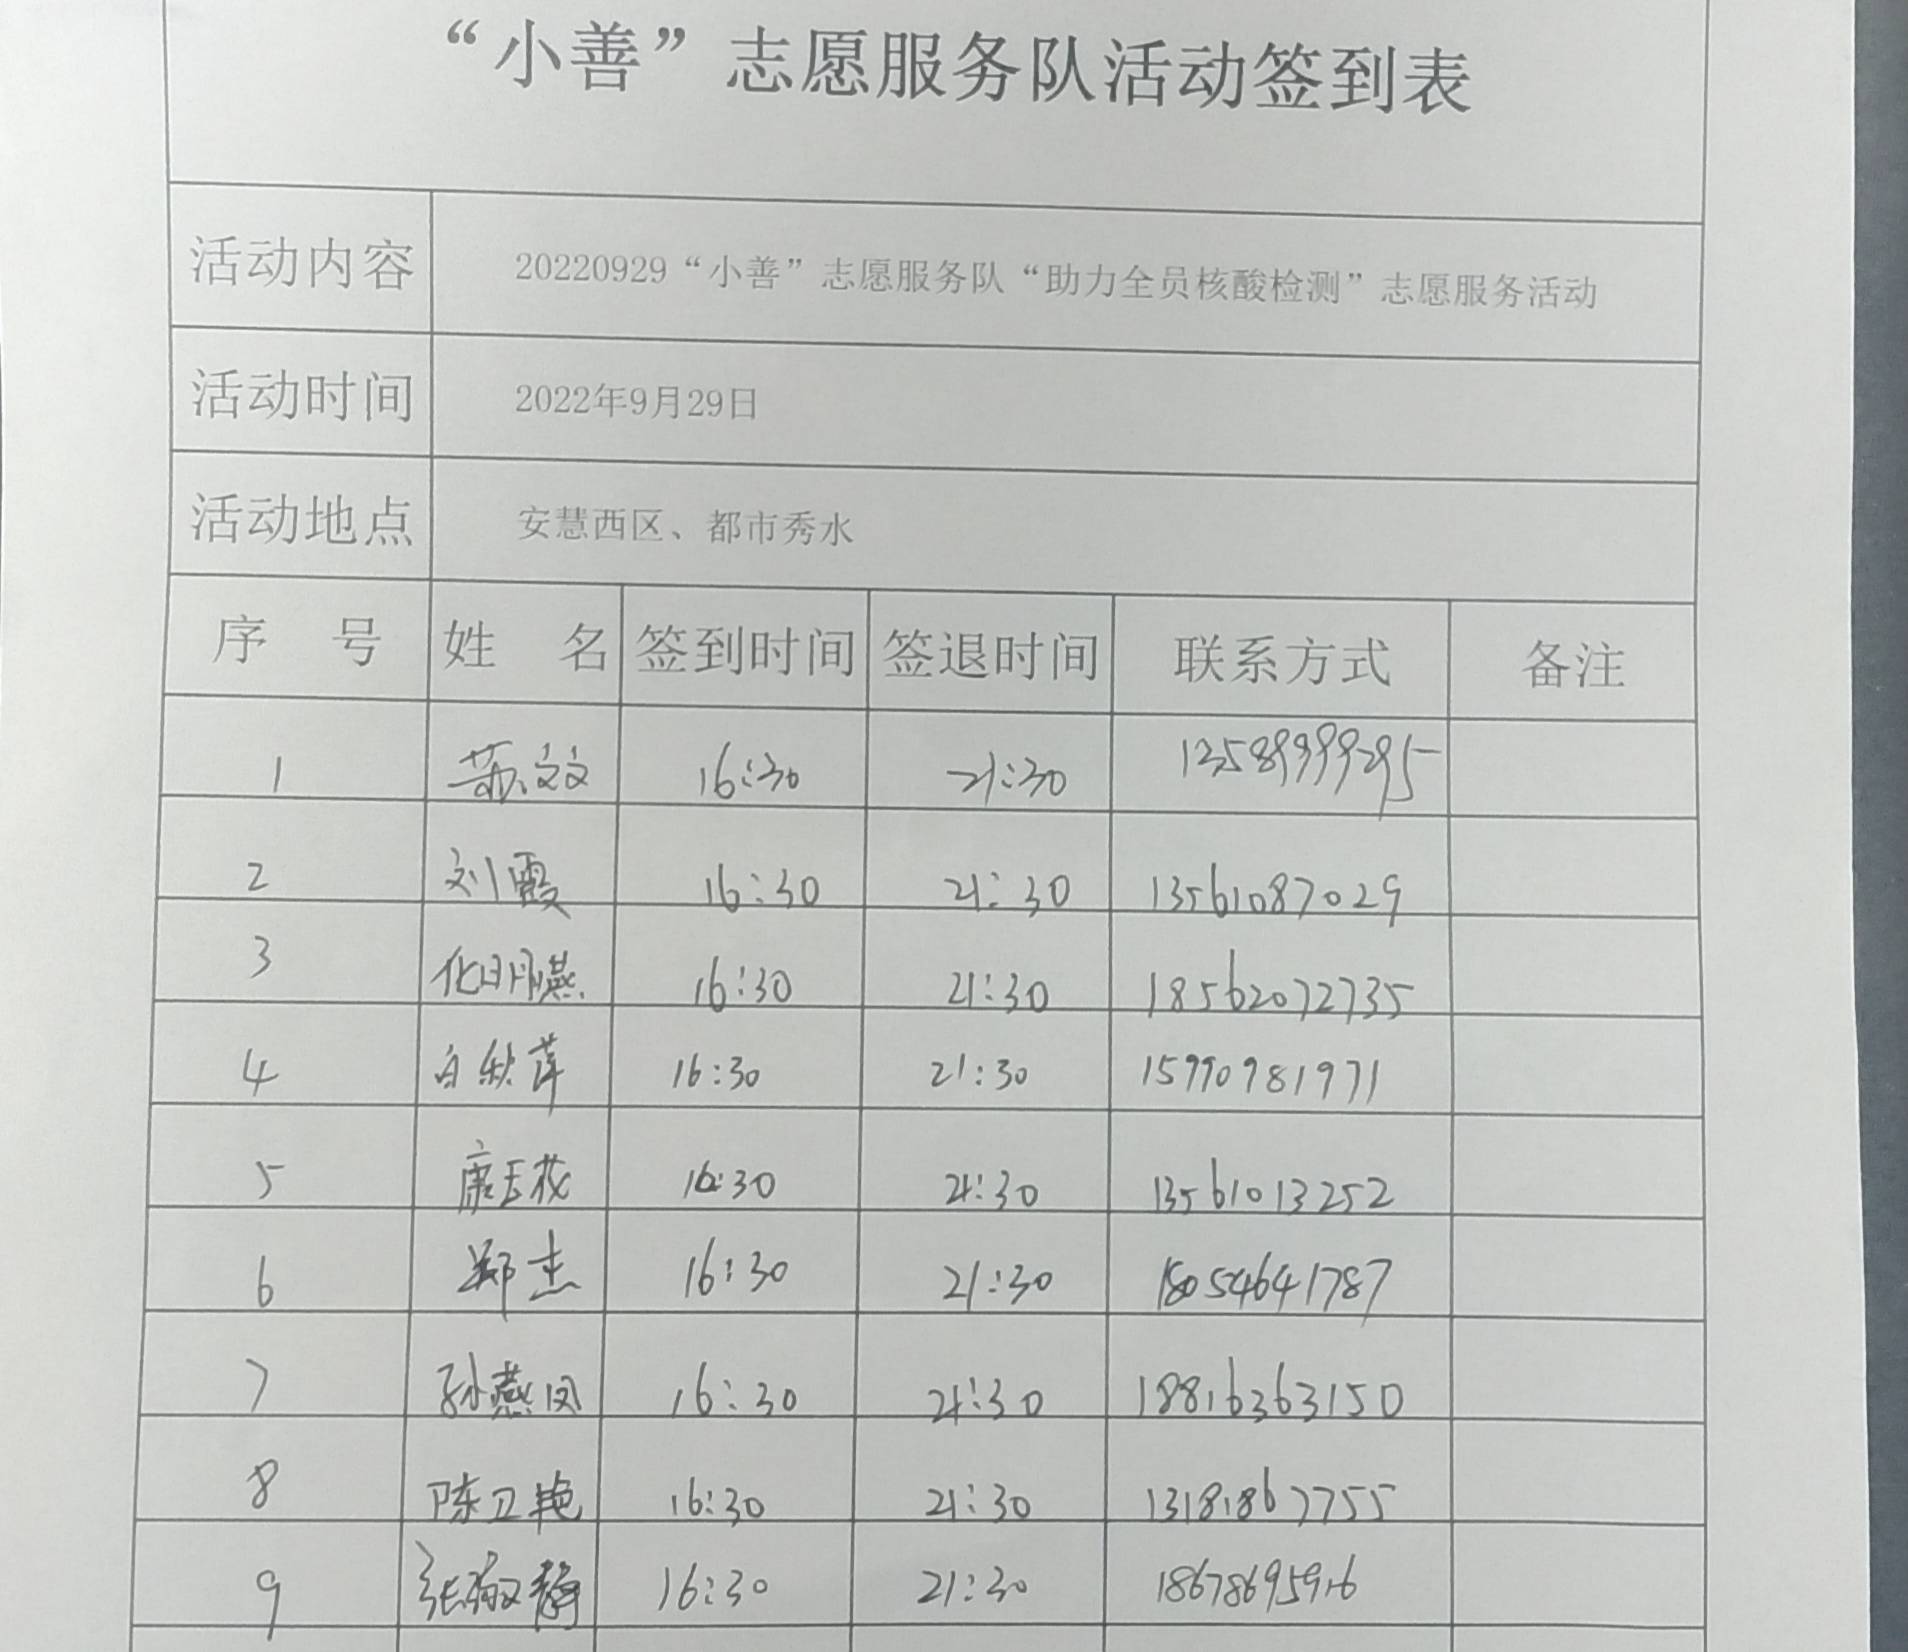 “小善”志愿服务队活动签到表
活动内容 20220929“小善”志愿服务队“助力全员核酸检测”志愿服务活动
活动时间 2022年9月29日
活动地点 安慧西区、都市秀水
序 号 姓 名 签到时间 签退时间 联系方式 备注
1 苏文文 16:30 21:30 13589999295
2 刘霞 16:30 21:30 13561087029
3 化明燕 16:30 21:30 18562072735
4 白秋萍 16:30 21:30 15990981971
5 康玉花 16:30 21:30 13561013252
6 郑杰 16:30 21:30 18054641787
7 孙燕凤 16:30 21:30 18816363150
8 陈卫艳 16:30 21:30 13181867755
9 张敏静 16:30 21:30 18678695916